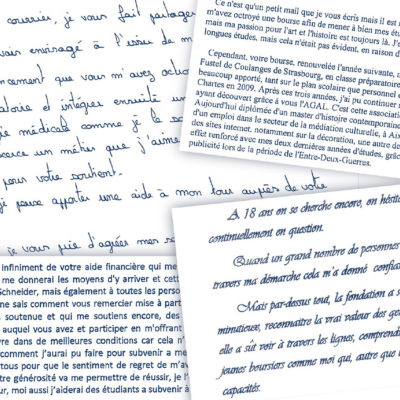 courrier, je vous fait partager
vais envisagé à l'issue de m
ncement que vous m'avez octro
alorie et intégrer ensuite un
ie médicale comme je le so
erce un métier que j'aime
pour votre soutient.
je puisse apporter une aide à mon tour auprès de votre
je vous prie d'agréer mes s
Ce n'est qu'un petit mail que je vous écris mais il est r
m'avez octroyé une bourse afin de mener à bien mes étu
mais ma passion pour l'art et l'histoire est toujours là. J'e
longues études, mais cela n'était pas évident, en raison d
Cependant, votre bourse, renouvelée l'année suivante, a
Fustel de Coulanges de Strasbourg, en classe préparatoire
beaucoup apporté, tant sur le plan scolaire que personnel e
Chartes en 2009. Après ces trois années, j'ai pu continuer
ayant découvert grâce à vous l'AGAL. C'est cette associatio
Aujourd'hui diplômée d'un master d'histoire contemporaine
d'un emploi dans le secteur de la médiation culturelle, à Aix
des sites internet, notamment sur la décoration, une autre de
effet renforcé avec mes deux dernières années d'études, grâc
publicité lors de la période de l'Entre-Deux-Guerres.
A 18 ans on se cherche encore, on hérite
continuellement en question.
Quand un grand nombre de personnes
travers ma démarche cela m'a donné confian
Mais par-dessus tout, la fondation a s
minutieux, reconnaitre la vrai valeur des gen
elle a sût voir à travers les lignes, comprendre
jeunes boursiers comme moi qui, autre que l
capacités.
infiniment de votre aide financière qui me
me donnerai les moyens d'y arriver et cet
Schneider, mais également à toutes les perso
ne sais comment vous remercier mise à part
a soutenue et qui me soutiens encore, des
auquel vous avez et participer en m'offrant
vre dans de meilleures conditions car cela n'
comment j'aurai pu faire pour subvenir a me
tous pour que le sentiment de regret de m'av
tre générosité va me permettre de réussir, je l'
ur, moi aussi j'aiderai des étudiants a subvenir à